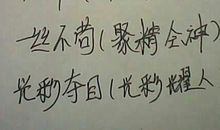 一丝不苟(聚精会神)
光彩夺目(光彩耀人